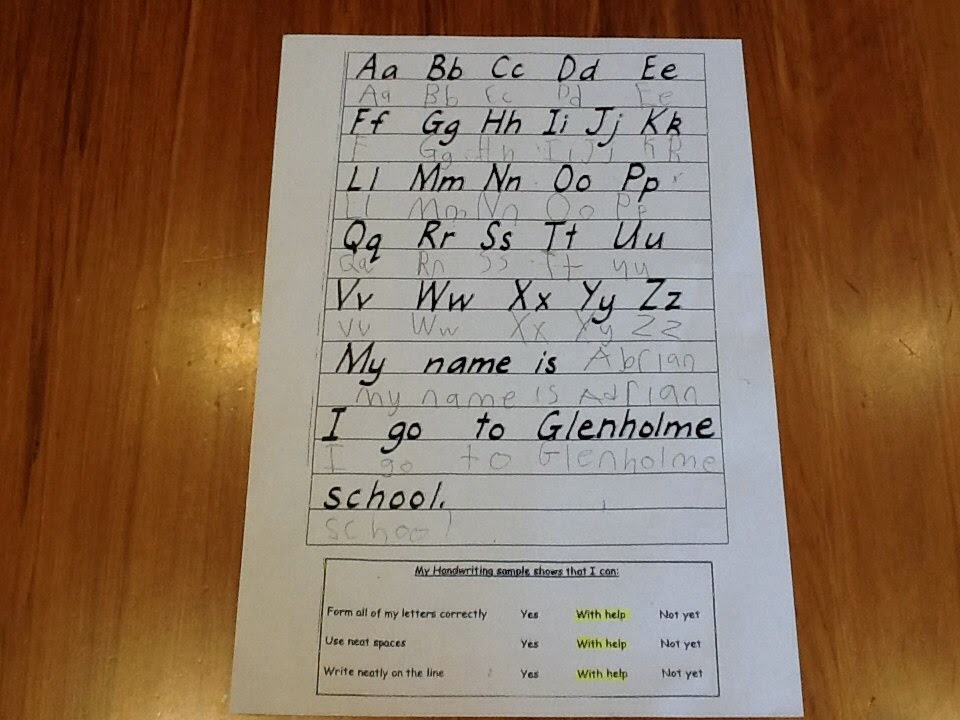 Aa Bb Cc Dd Ee
Aa Bb Cc Dd Ee
Ff Gg Hh Ii Jj Kk
F Gg Hh Ii Jj KR
Ll Mm Nn Oo Pp
Ll Mm Nn Oo Pp
Qq Rr Ss Tt Uu
Qa Rn Ss Tt yu
Vv Ww Xx Yy Zz
vv Ww Xx Xy Zz
My name is Abrian
My name is Adrian
I go to Glenholme
I go to Glenholme
school.
school
My Handwriting sample shows that I can:
Form all of my letters correctly Yes With help Not yet
Use neat spaces Yes With help Not yet
Write neatly on the line Yes With help Not yet